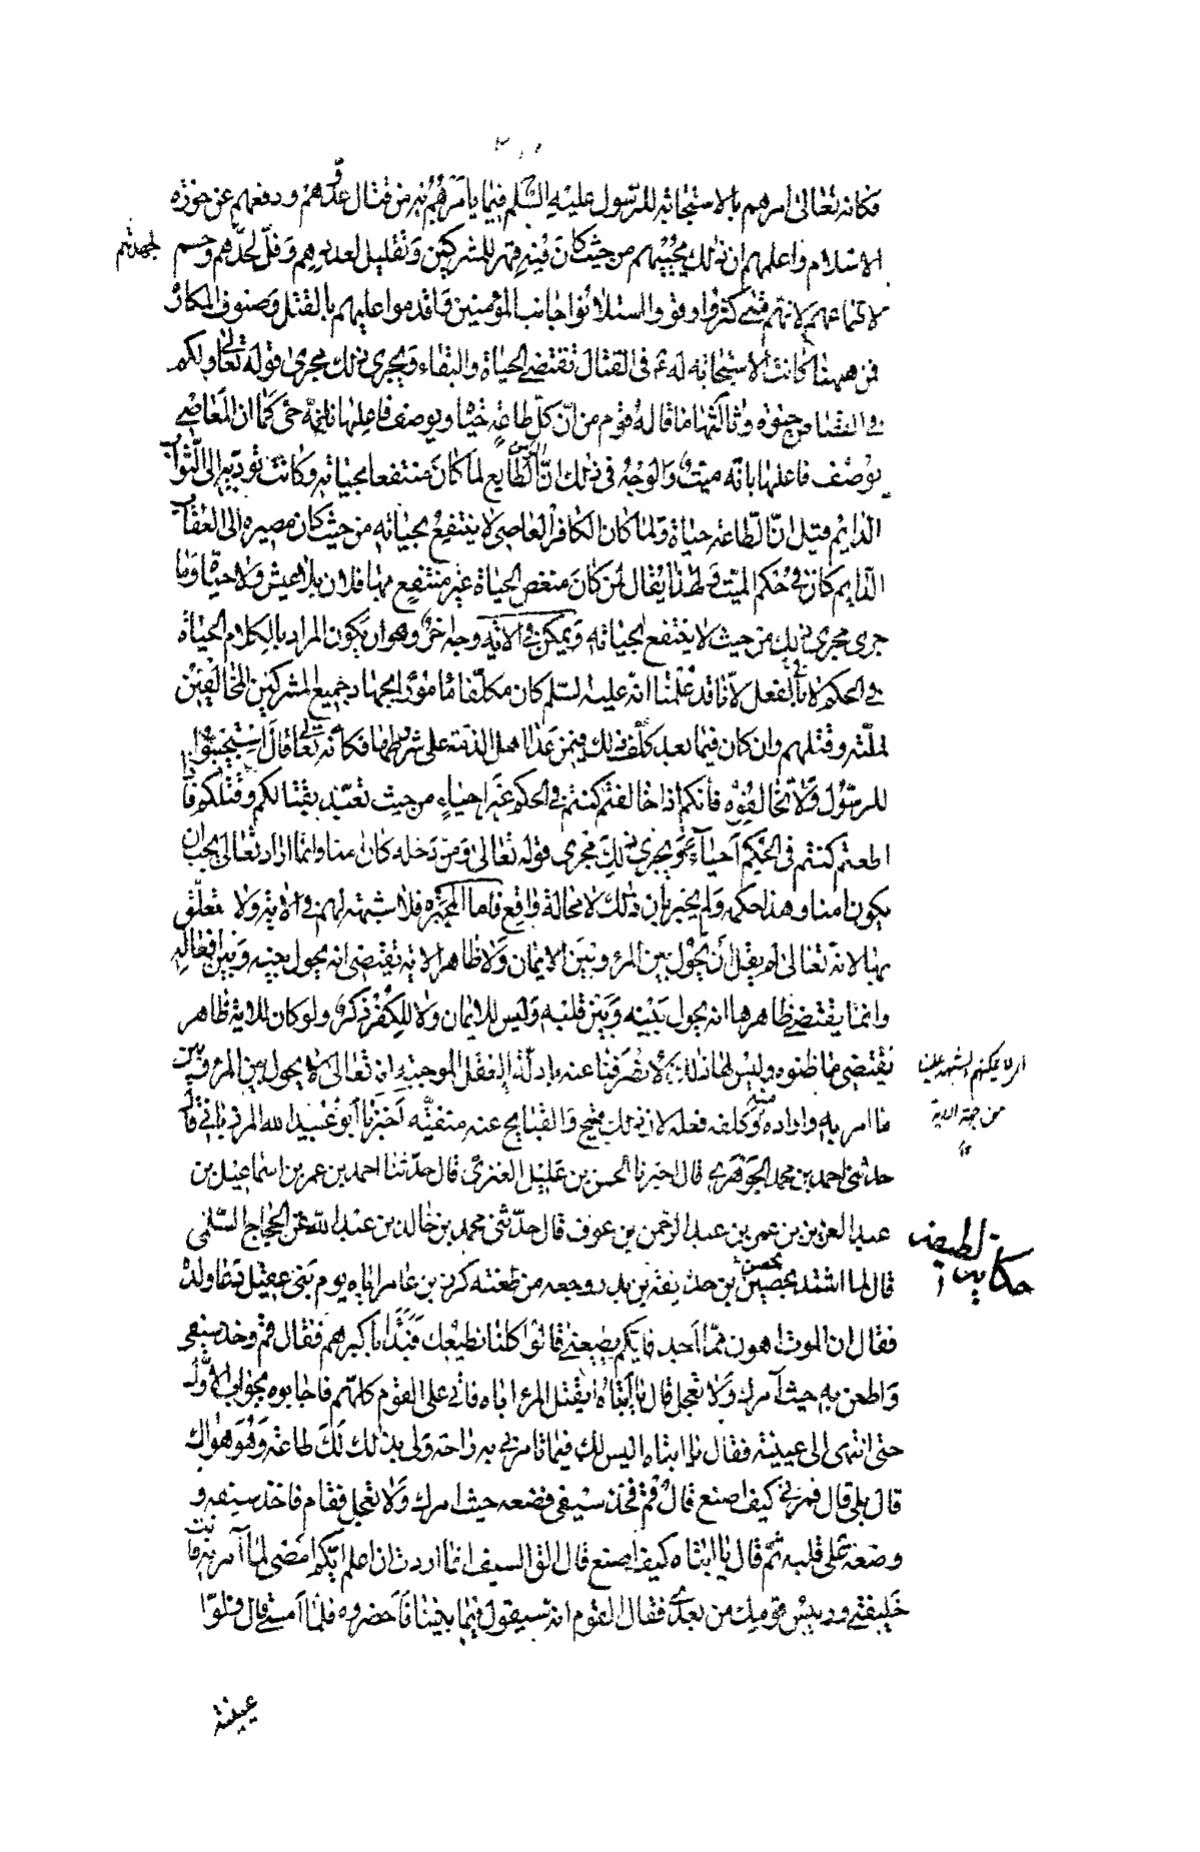 فكانه تعالى امرهم بالاستجابة للرسول عليه السلم فيما يامرهم به من قتال عدوهم ودفعهم عن حوزة
الاسلام واعلمهم ان ذلك يحييهم من حيث كان فيه قهر للمشركين وتقليل لعددهم وفل لحدهم وحسم
لاطماعهم لانهم متى كثروا وقووا استلانوا جانب المؤمنين واقدموا عليهم بالقتل وصنوف المكاره
فمن ههنا كانت الاستجابة له ع في القتال تقتضي الحياة والبقاء ويجري ذلك مجرى قوله تعالى ولكم
في القصاص حيوة وثالثها ما قاله قوم من ان كل طاعة حياة ويوصف فاعلها بانه حي كما ان المعاصي
يوصف فاعلها بانه ميت والوجه في ذلك ان الطايع لما كان منتفعا بحياته وكانت تؤديه الى الثواب
الدايم قيل ان الطاعة حياة ولما كان الكافر العاصي لا ينتفع بحياته من حيث كان مصيره الى العقاب
الدايم كان في حكم الميت ولهذا يقال لمن كان منغص الحياة غير منتفع بها فلان بلا عيش ولا حياة وما
جرى مجرى ذلك من حيث لا ينتفع بحياته ويمكن في الاية وجه اخر وهو ان يكون المراد بالكلام الحياة
في الحكم لا بالفعل لانا قد علمنا انه عليه السلم كان مكلفا مامورا بجهاد جميع المشركين المخالفين
لملته وقتلهم وان كان فيما بعد كلف ذلك فيمن عدا اهل الذمة على شروطها فكانه تعالى قال استجيبوا
للرسول ولا تخالفوه فانكم اذا خالفتم كنتم في الحكم غير احياء من حيث تعبد بقتالكم وقتلكم فاذا
اطعتم كنتم في الحكم احياء ويجري ذلك مجرى قوله تعالى ومن دخله كان امنا وانما اراد تعالى يجب ان
يكون امنا وهذا حكمه ولم يخبر بان ذلك لا محالة واقع فاما المجبرة فلا شبهة لهم في الاية ولا متعلق
بها لانه تعالى لم يقل انه يحول بين المرء وبين الايمان ولا ظاهر الاية يقتضي انه يحول بينه وبين افعاله
وانما يقتضي ظاهرها انه يحول بينه وبين قلبه وليس للايمان ولا للكفر ذكر ولو كان للاية ظاهر
يقتضي ما ظنوه وليس لها ذلك لانصرفنا عنه بادلة العقل الموجبة انه تعالى لا يحول بين المرء وبين
ما امر به واراده منه وكلفه فعله لان ذلك قبيح والقبايح عنه منتفية اخبرنا ابو عبيد الله المرزباني قال
حدثني احمد بن محمد الجوهري قال اخبرنا الحسن بن عليل العنزي قال حدثنا احمد بن عمر بن اسماعيل بن
عبد العزيز بن عمر بن عبد الرحمن بن عوف قال حدثني محمد بن خالد بن عبد الله عن الحجاج السلمي
قال لما اشتد بحصن بن حذيفة بن بدر وجعه من طعنة كرز بن عامر اياه يوم بني عقيل دعا ولده
فقال ان الموت اهون مما اجد فايكم يطيعني قالوا كلنا نطيعك فبدا باكبرهم فقال قم وخذ سيفي
واطعن به حيث آمرك ولا تعجل قال يا ابتاه ايقتل المرء اباه فاتى على القوم كلهم فاجابوه بجواب الاول
حتى انتهى الى عيينة فقال يا ابتاه اليس لك فيما تامرني به راحة ولي بذلك لك طاعة وهو هواك
قال بلى قال فمرني كيف اصنع قال قم فخذ سيفي فضعه حيث امرك ولا تعجل فقام فاخذ سيفه و
وضعه على قلبه ثم قال يا ابتاه كيف اصنع قال الق السيف انما اردت ان اعلم ايكم امضى لما آمر به فانت
خليفتي ورييس قومك من بعدي فقال القوم انه سيقول فيما بيننا فاحضروه فلما امسى قال ولوا
عيينة
لجهدهم
امر لا يمكنهم الشبهة علينا
من جهة الاية
حكاية لطيفة